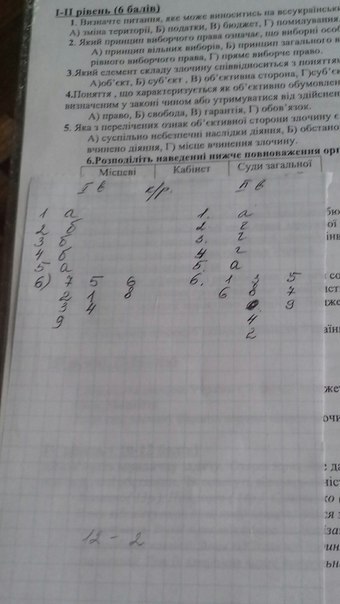 І-ІІ рівень (6 балів)
1. Визначте питання, яке може виноситись на всеукраїнськи
А) зміна території, Б) податки, В) бюджет, Г) помилування.
2. Який принцип виборчого права означає, що виборні особи
А) принцип вільних виборів, Б) принцип загального в
рівного виборчого права, Г) пряме виборче право.
3.Який елемент складу злочину співвідноситься з поняттям
А)об'єкт, Б) суб'єкт, В) об'єктивна сторона, Г)суб'єк
4.Поняття, що характеризується як об'єктивно обумовлен
визначеним у законі чином або утримуватися від здійснен
А) право, Б) свобода, В) гарантія, Г) обов'язок.
5. Яка з перелічених ознак об'єктивної сторони злочину є
А) суспільно небезпечні наслідки діяння, Б) обстано
вчинено діяння, Г) місце вчинення злочину.
6.Розподіліть наведенні нижче повноваження орг
Місцеві Кабінет Суди загальної
І в к/р. ІІ в
1 а 1. а
2 б 2 г
3 б 3. г
4 б 4 г
5 а 5. а
6) 7 5 6 6. 1 3 5
2 1 8 6 8 7
3 4 9
9 4
2
12 - 2